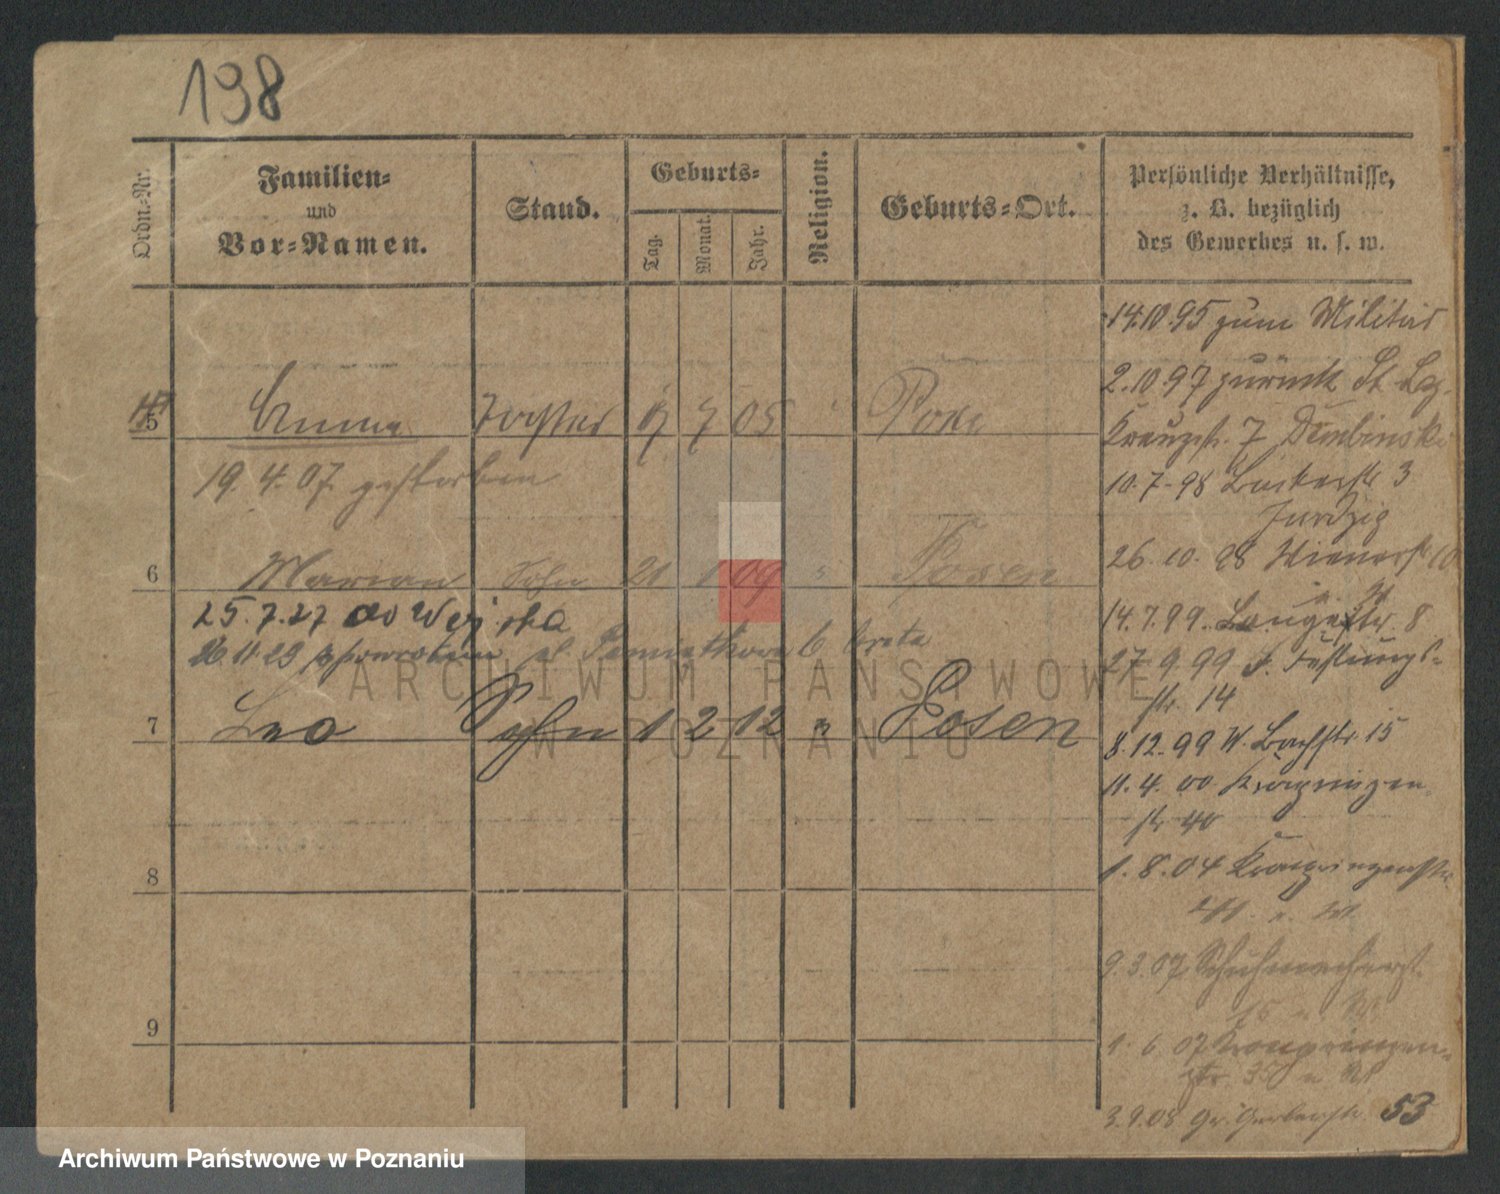 198
Ordn.-Nr.
Familien-
und
Vor-Namen.
Stand.
Geburts-
Tag.
Monat.
Jahr.
Religion.
Geburts-Ort.
Persönliche Verhältnisse,
z. B. bezüglich
des Gewerbes u. s. w.
5 Anna Tochter 7 05 Pose
19. 4. 07. gestorben
6 Marian Sohn 21 1 09 " Posen
25. 7. 27 do Wejska
26 11 29 pl
7 Leo Sohn 1 2 12 " Posen
8
9
14.10.95 zum Militär
2.10.97 zurück St. Laz.
Kreuzstr. 7 Dembinski
10.7.98 Bäckerstr 3
26. 10. 98 Wienerstr 10
14.7.99. Langestr. 8
27. 9. 99 Festungs-
str. 14
8.12.99 W. Bachstr. 15
11. 4. 00 Kronprinzen-
str 40
1. 8. 04 Kronprinzenstr.
9. 3. 07 Schuhmacherst.
15
1. 6. 07 Kronprinzen-
str. 35
3. 9. 08 Gr. Gerberstr. 53
ARCHIWUM PAŃSTWOWE
W POZNANIU
Archiwum Państwowe w Poznaniu